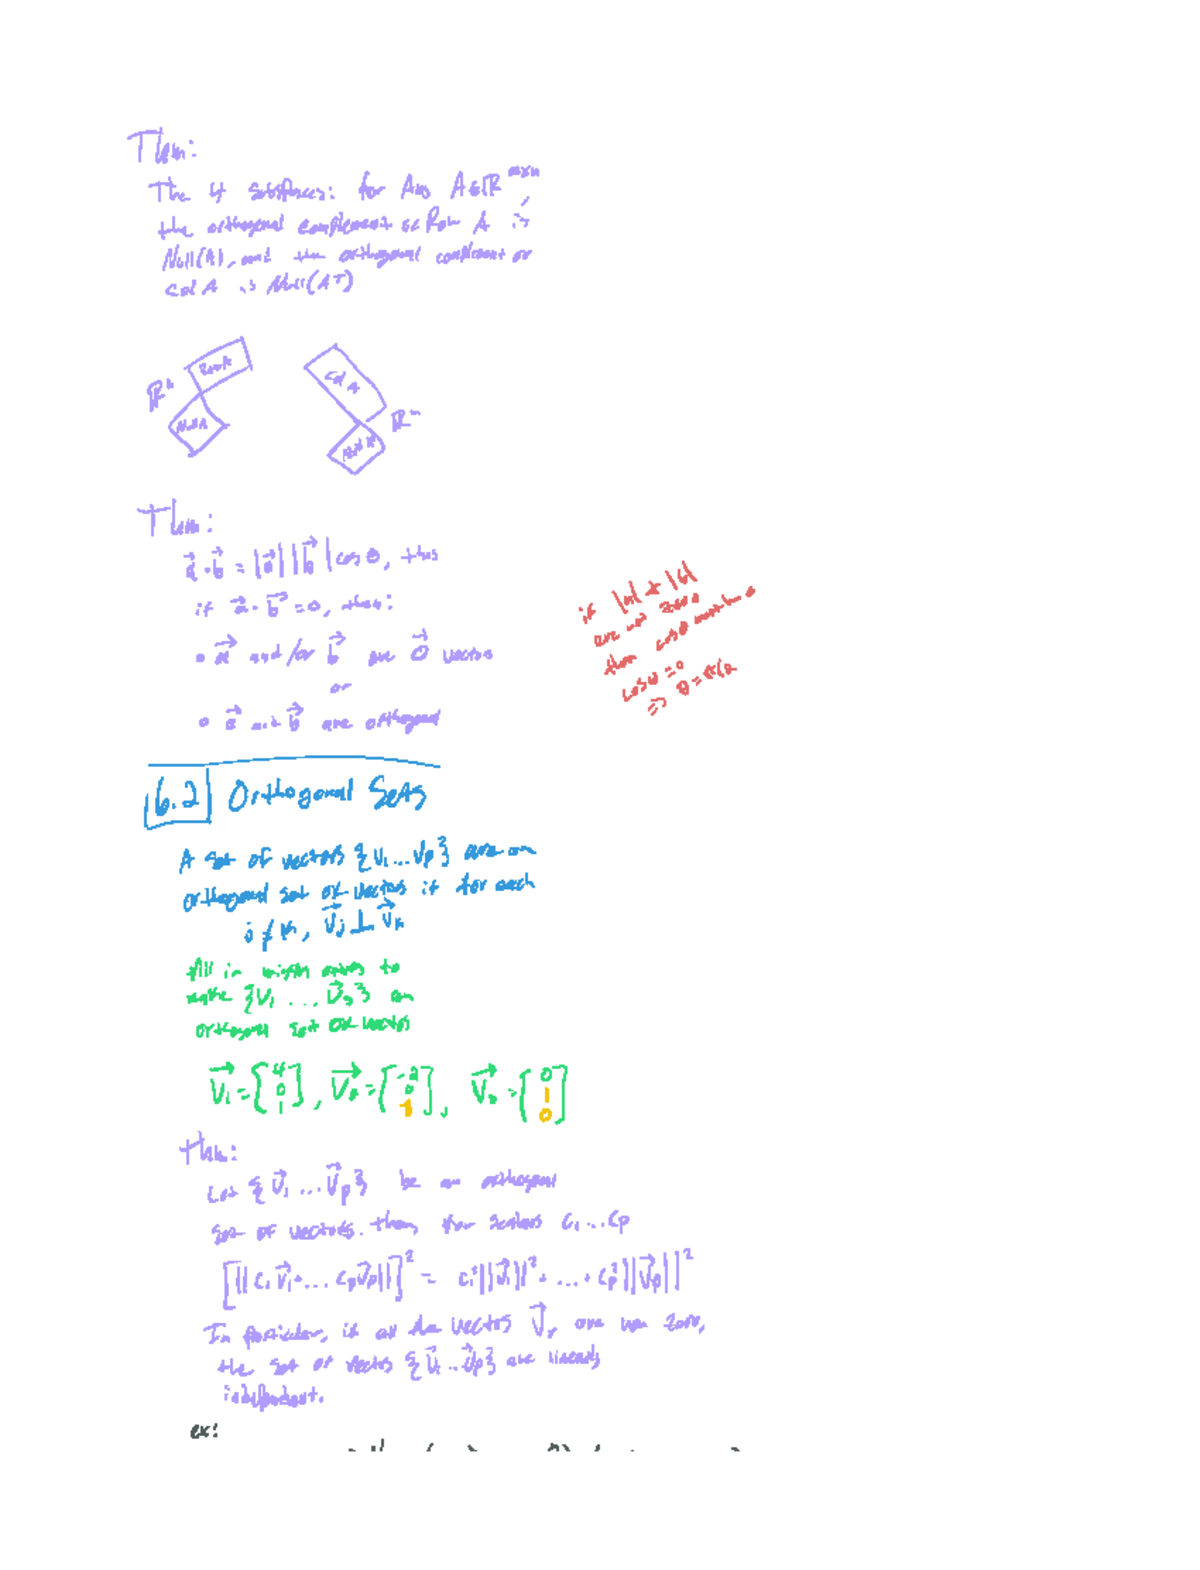 Thm:
The 4 subspaces: for Any A∈ℝ^(m×n),
the orthogonal complement of Row A is
Null(A), and the orthogonal complement of
Col A is Null(A^T)
Row A
Col A
ℝ^n
Null A
ℝ^m
Thm:
a⃗ · b⃗ = |a⃗| |b⃗| cos θ, thus
if a⃗ · b⃗ = 0, then:
• a⃗ and/or b⃗ are 0⃗ vectors
or
• a⃗ and b⃗ are orthogonal
if |a| + |b|
are not zero
then cosθ must be 0
cosθ = 0
=> θ = π/2
6.2 Orthogonal Sets
A set of vectors {v₁...vp} are an
orthogonal set of vectors if for each
j ≠ k, v⃗j ⊥ v⃗k
fill in missing entries to
make {v₁ ... v⃗₃} an
orthogonal set of vectors
v⃗₁ = [4 0 1], v⃗₂ = [-2 0 ], v⃗₃ = [0 1 0]
thm:
Let {v⃗₁ ... v⃗p} be an orthogonal
set of vectors. then, for scalars c₁...cp
[||c₁v⃗₁+... cpv⃗p||]² = c₁²||v⃗₁||² + ... + cp²||v⃗p||²
In particular, if all the vectors v⃗ are non zero,
the set of vectors {v⃗₁...v⃗p} are linearly
independent.
ex: